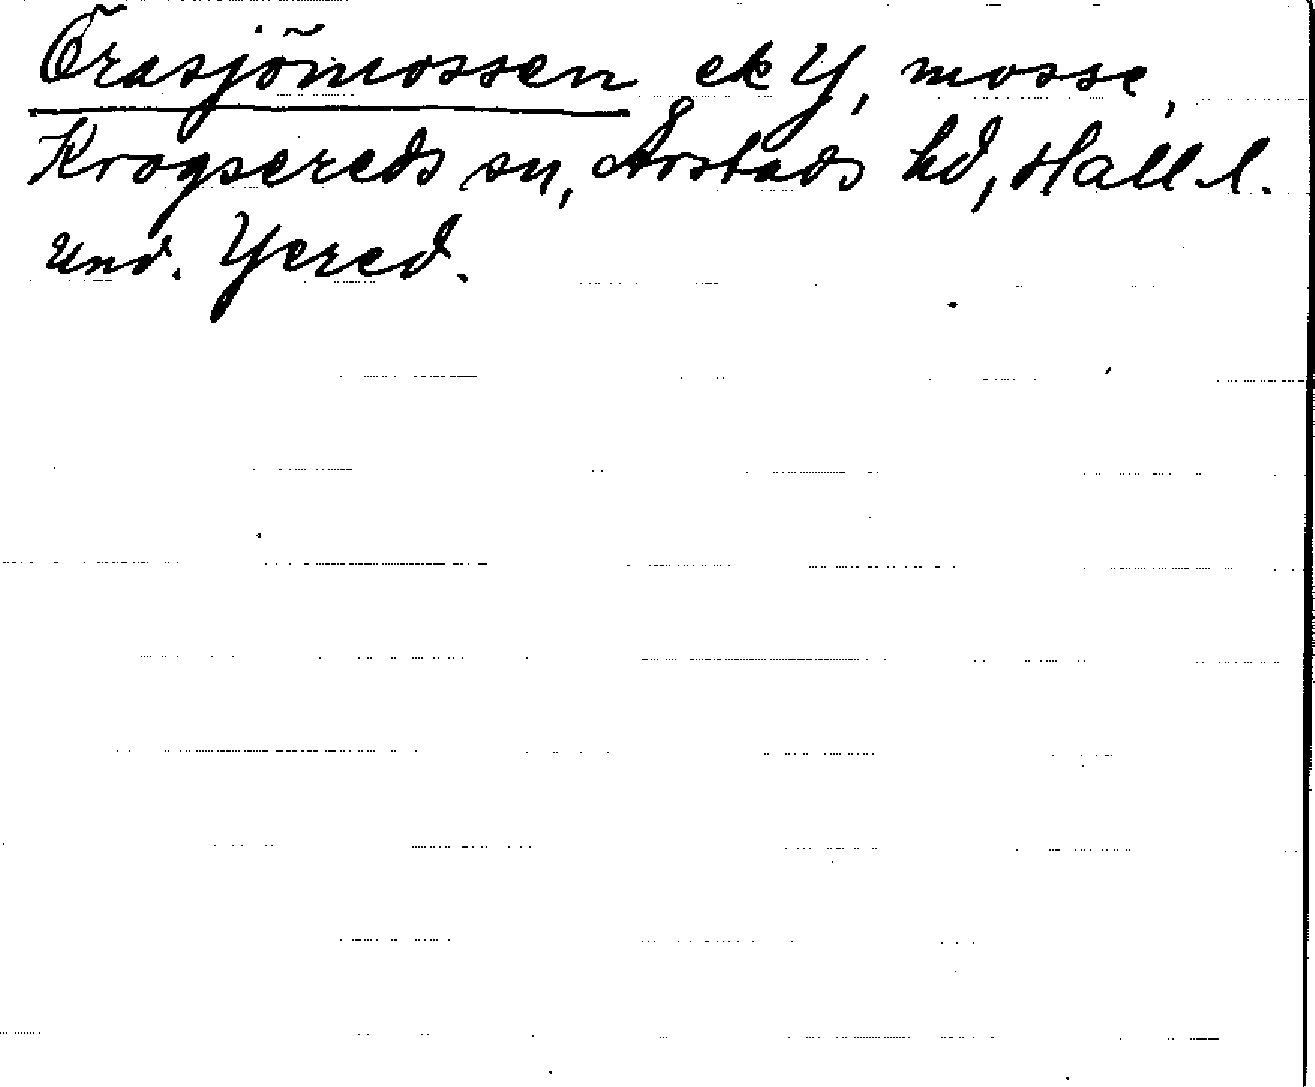 Örasjömossen ek Y, mosse,
Krogsereds sn, Årstads hd, Hall. l.
Und. Yered.